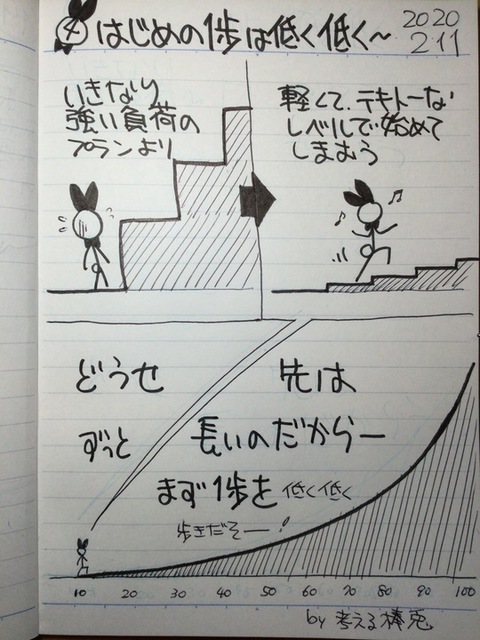 はじめの1歩は低く低く〜
2020
2.11
いきなり
強い負荷の
プランより
軽くて、テキトーな
レベルで始めて
しまむう
どうせ
ずっと
先は
長いのだからー
まず1歩を 低く低く
歩きだそー!
10 20 30 40 50 60 70 80 90 100
by 考える棒兎